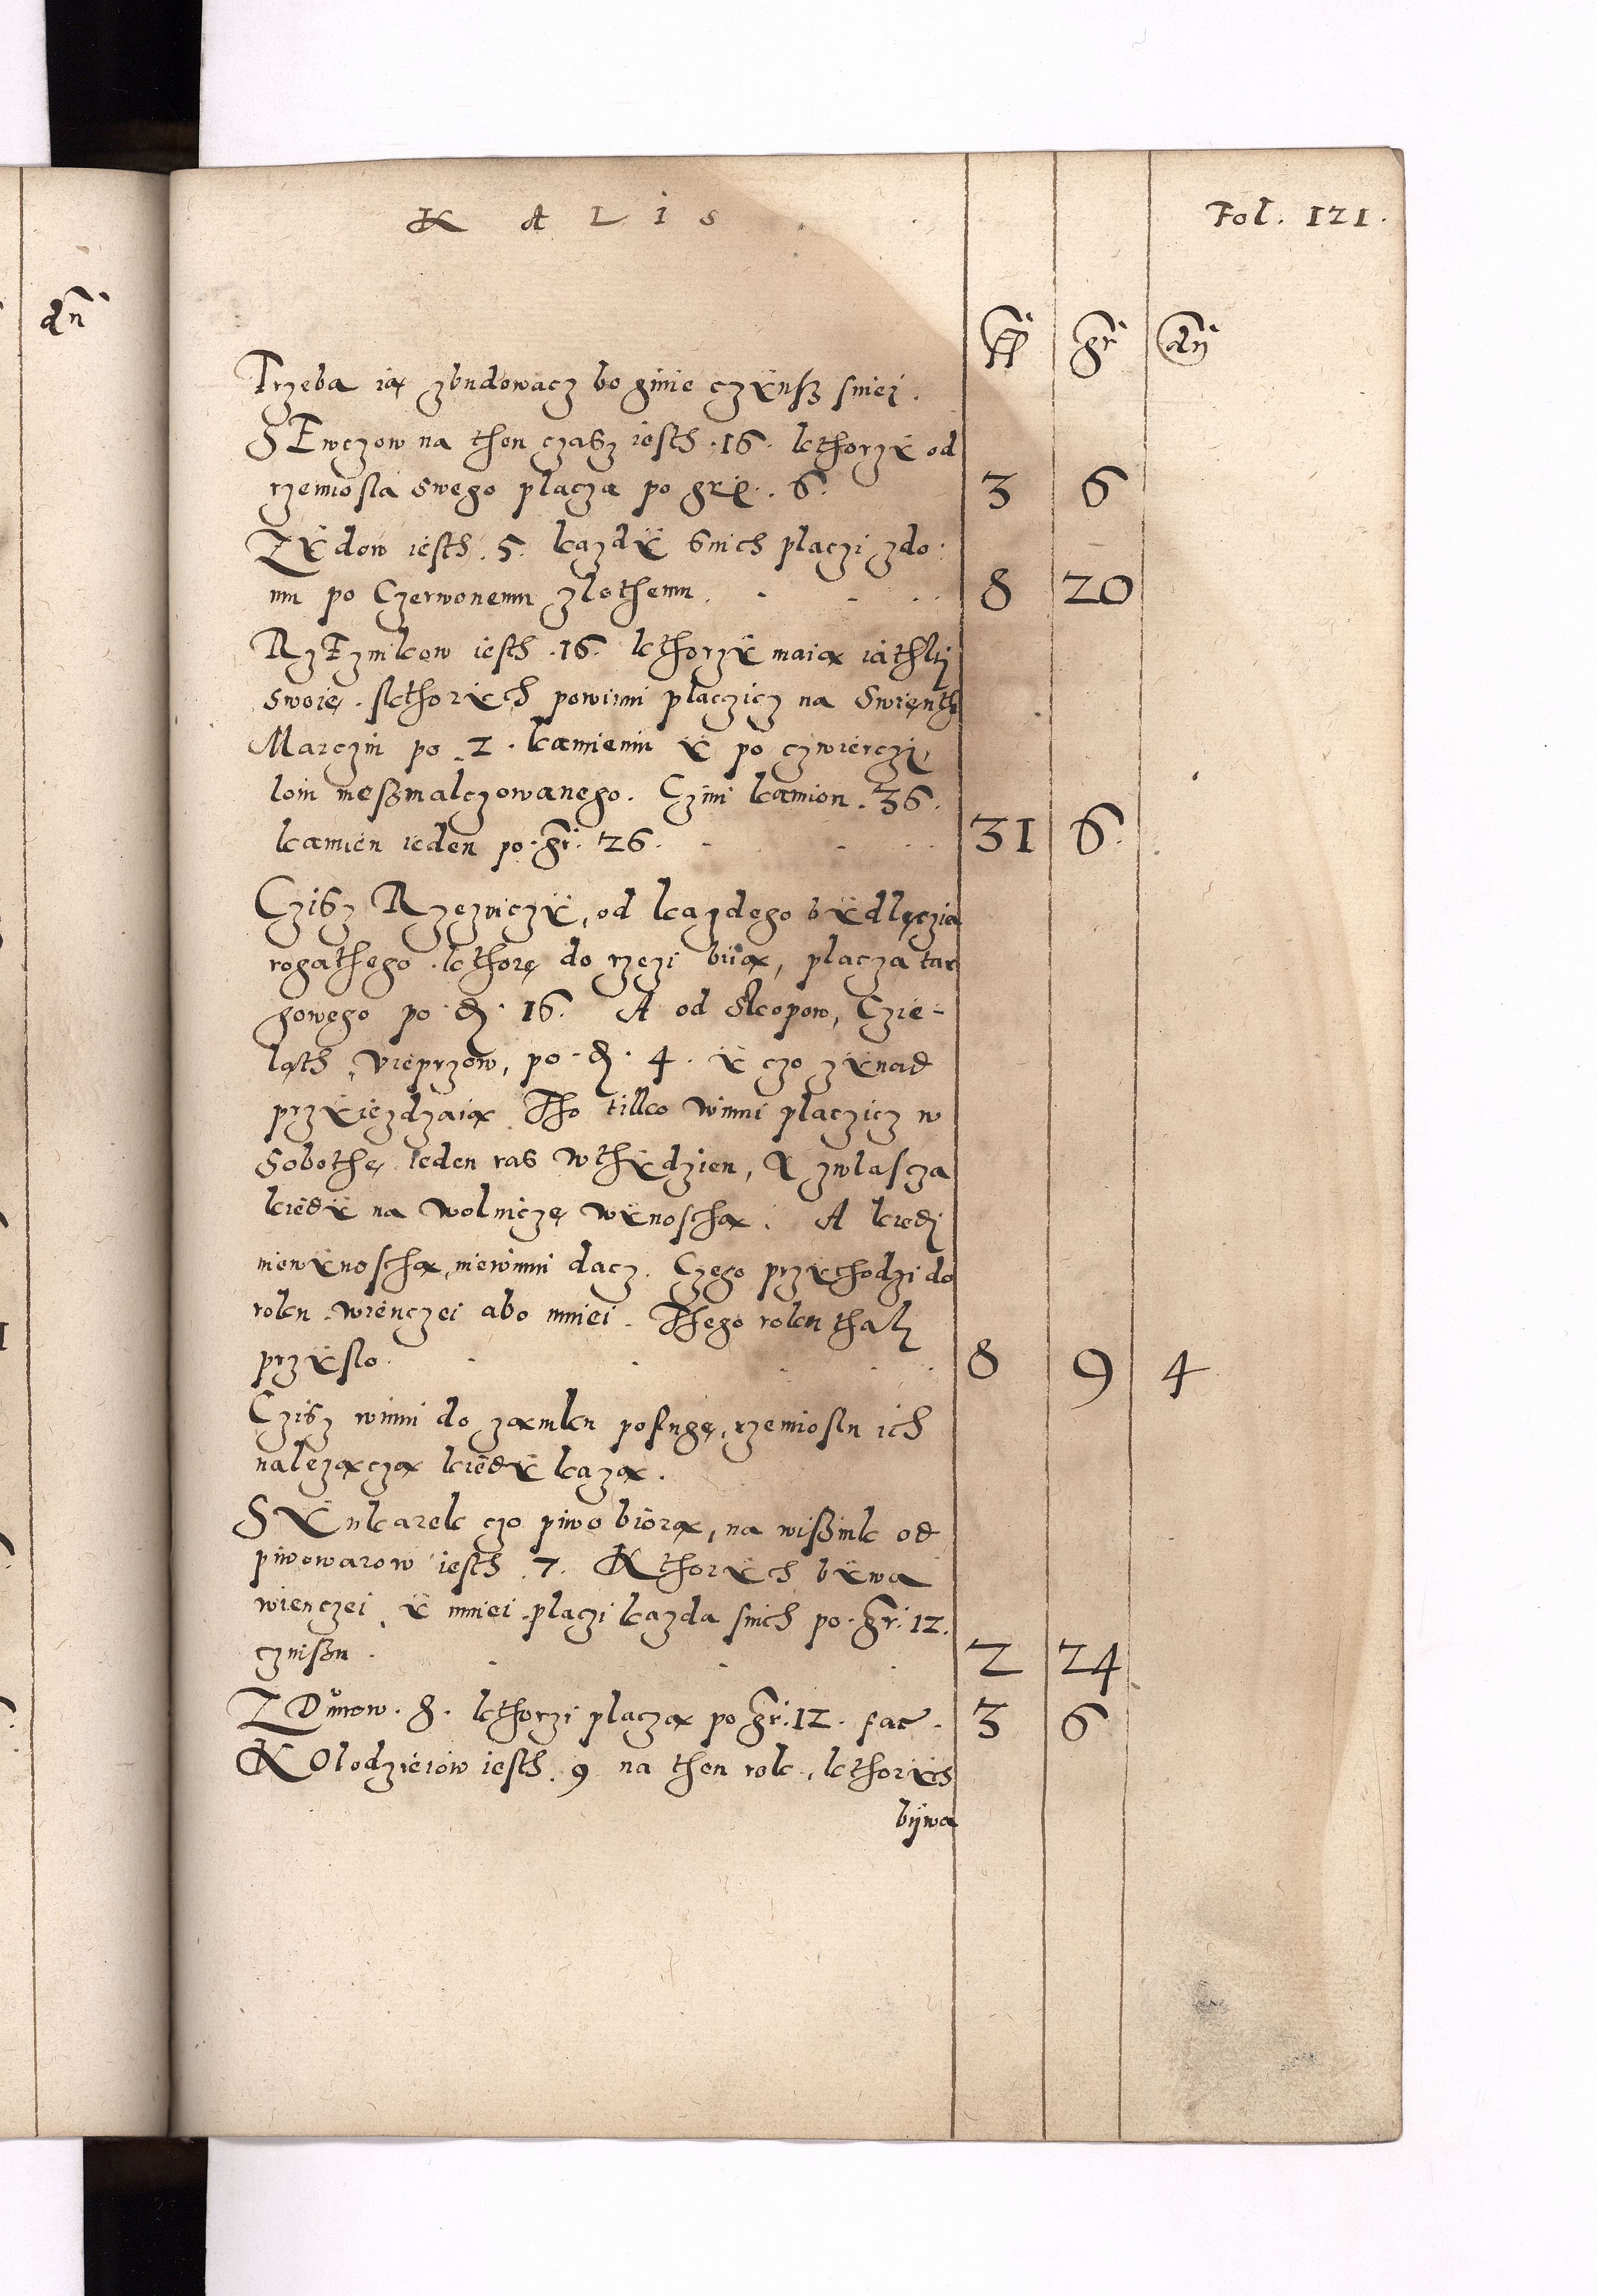 KALIS
Fol. 121.
dn
fl gr dn
Trzeba ią zbudowacz bo ginie czÿnsz sniej.
SEwczow na then czasz iesth .16. kthorzÿ od
rzemiosla swego placza po gr. 6. 3 6
ZÿdoW iesth .5. kazdÿ snich placzi zdo
mu po Czerwonemu zlothemu. 8 20
RzEznikow iesth .16. kthorzÿ maią iathki
swoie. skthorÿch powinni placzicz na Swienth
Marczin po 2. kamieniu ÿ po czwierczi,
loiu nieszmalczowanego. Czini kamion .36.
kamien ieden po gr. 26. 31 6.
Czisz RzeznicZÿ, od kazdego bÿdlęczia
rogathego kthore do rzezi biią, placza tar
gowego po d. 16. A od skopow, Czie-
ląth, vieprzow, po d. 4. ÿ czo zÿnad
przÿiezdzaią. Tho tilko winni placzicz w
Sobothe ieden ras wthÿdzien, A zwlascza
kiedÿ na wolnicze wÿnoscha. A kiedj
niewÿnoscha, niewinni dacz. Czego przÿchodzi do
roku wienczei abo mniei. Thego roku thak
przÿslo. 8 9 4
Czisz winni do zamku poslugę, rzemioslu ich
nalezączą kiedÿ kazą.
SZÿnkarek czo piwo biorą, na wiszink od
piwowarow iesth .7. Kthorÿch bÿwa
wienczei ÿ mniei placzi kazda snich po gr. 12.
czinszu. 2 24
ZDunow .8. kthorzi placzą po gr. 12. fac. 3 6
KOlodzieiow iesth .9 na then rok, kthorÿch
bÿwa